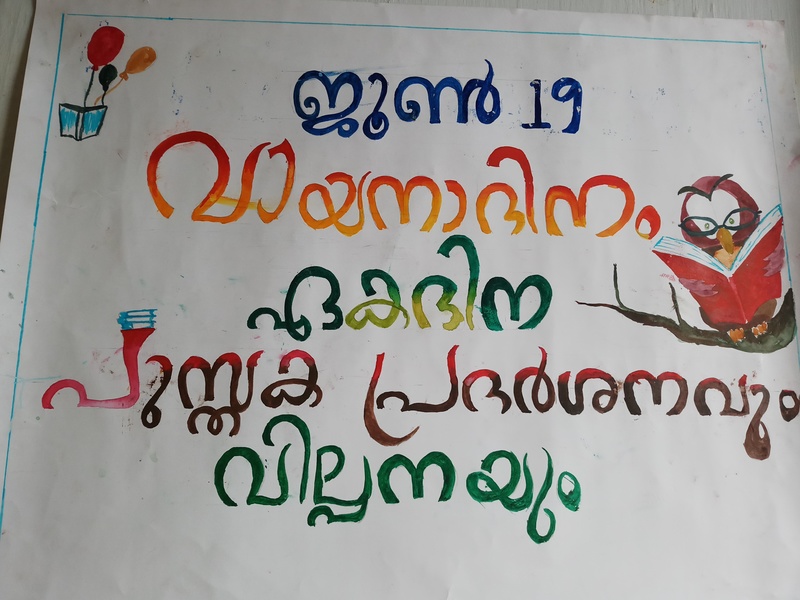 ജൂൺ 19
വായനാദിനം
ഏകദിന
പുസ്തക പ്രദർശനവും
വില്പനയും